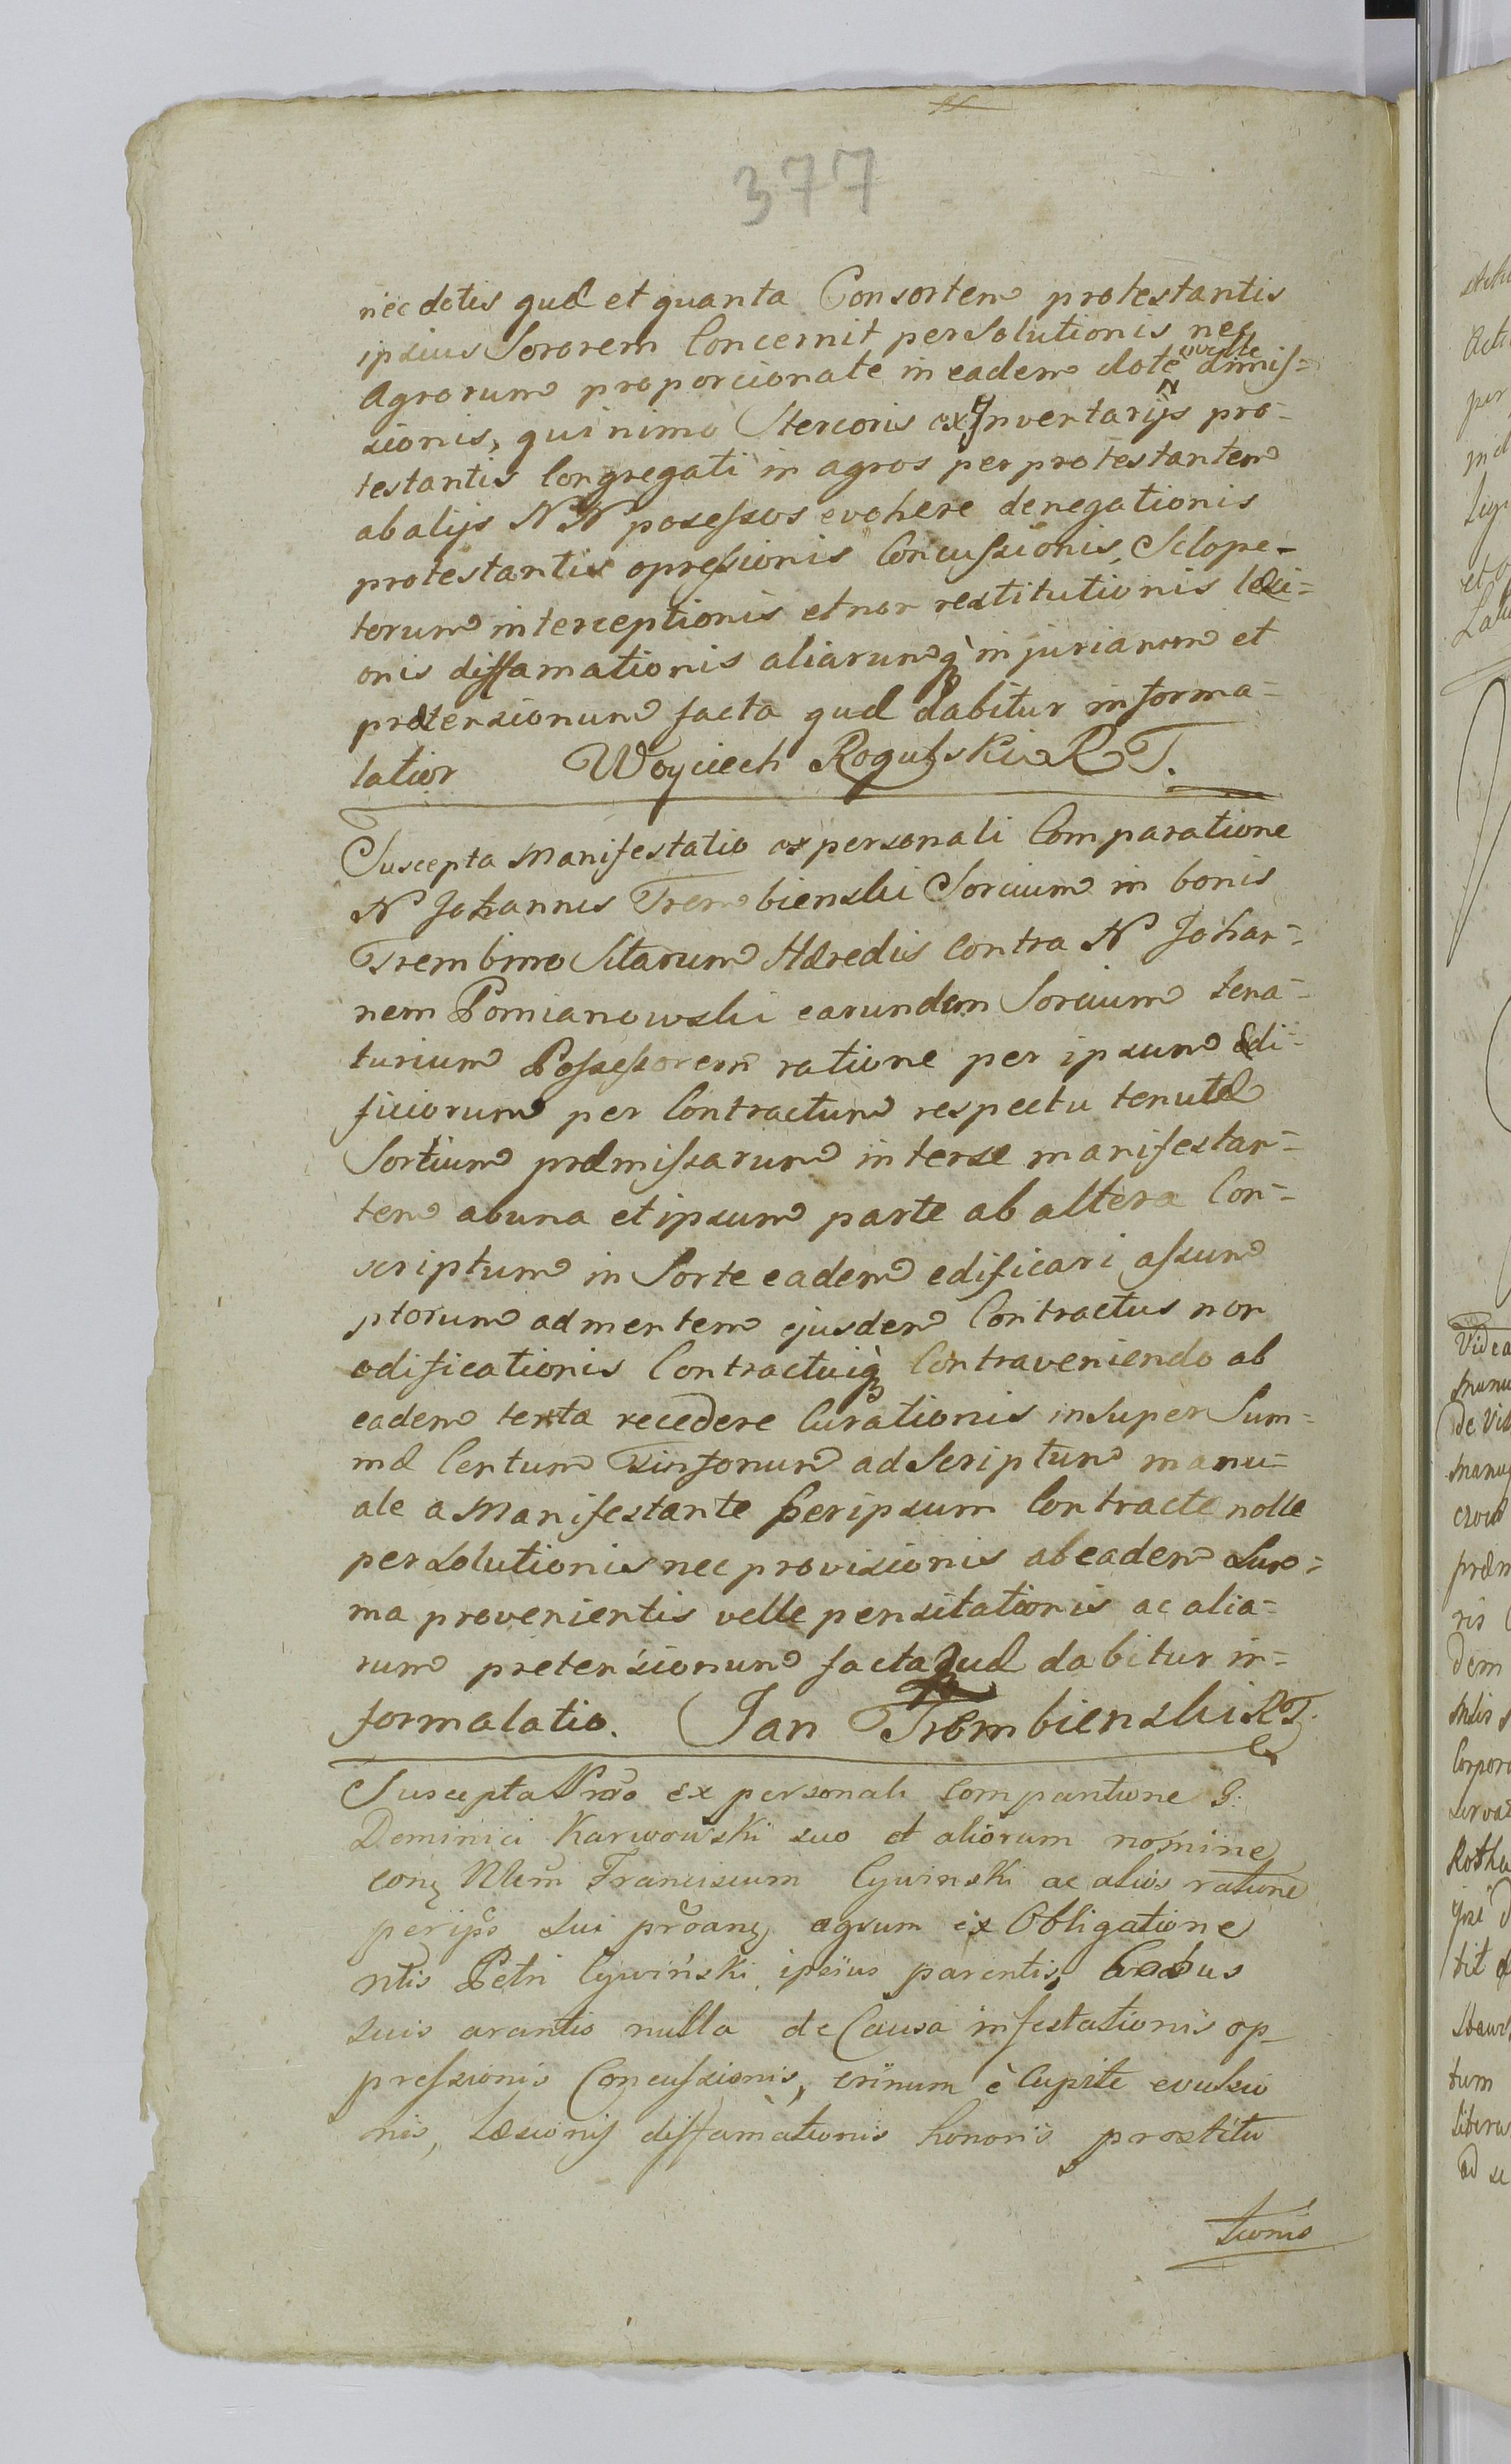 377
nec dotis quæ et quanta Consortem protestantis
ipsius Sororem Concernit persolutionis nec
Agrorum proporcionate in eadem dote dimis=
sionis, quinimo Stercoris ex Inventarijs pro=
testantis Congregati in agros per protestantem
ab alijs NN posessos evehere denegationis
protestantis opressionis Concussionis, Sclope=
torum interceptionis et non restitutionis læsi=
onis diffamationis aliarumq̀ injuriarum et
prætensionum facta quæ dabitur informa=
latior Woyciech Rogulski R T.
Suscepta Manifestatio ex personali Comparatione
N Johannis Trembienski Sorcium in bonis
Trembino Sitarum Hæredis contra N Johan=
nem Pomianowski earundem Sorcium tena=
turium Possessorem ratione per ipsum Ædi=
ficiorum per Contractum respectu tenutæ
Sortium præmissarum inter se manifestan=
tem ab una et ipsum parte ab altera Con=
scriptum in Sorte eadem edificari assum
ptorum ad mentem ejusdem Contractus non
edificationis Contractuiq̀ Contraveniendo ab
eadem tenta recedere Curationis insuper Sum=
mæ Centum Tinfonum ad Scriptum manu=
ale a Manifestante per ipsum Contractæ nolle
persolutionis nec provisionis ab eadem Sum=
ma provenientis velle pensitationis ac alia=
rum pretensionum facta quæ dabitur in=
forma latio. Jan Trembienski RT.
Suscepta Prõo ex personali comparitione G.
Dominici Karwowski suo et aliorum nomine
con Nlem Franciscum Cywinski ac alios ratione
per ips sui agrum ex Obligatione
ntis Petri Cywiński ipsius parentis, bobus
suis arantis nulla de Causa infestationis op_
pressionis Concussionis, crinum è Capite evulsio
nis, Læsionis diffamationis honoris prostitu
tionis